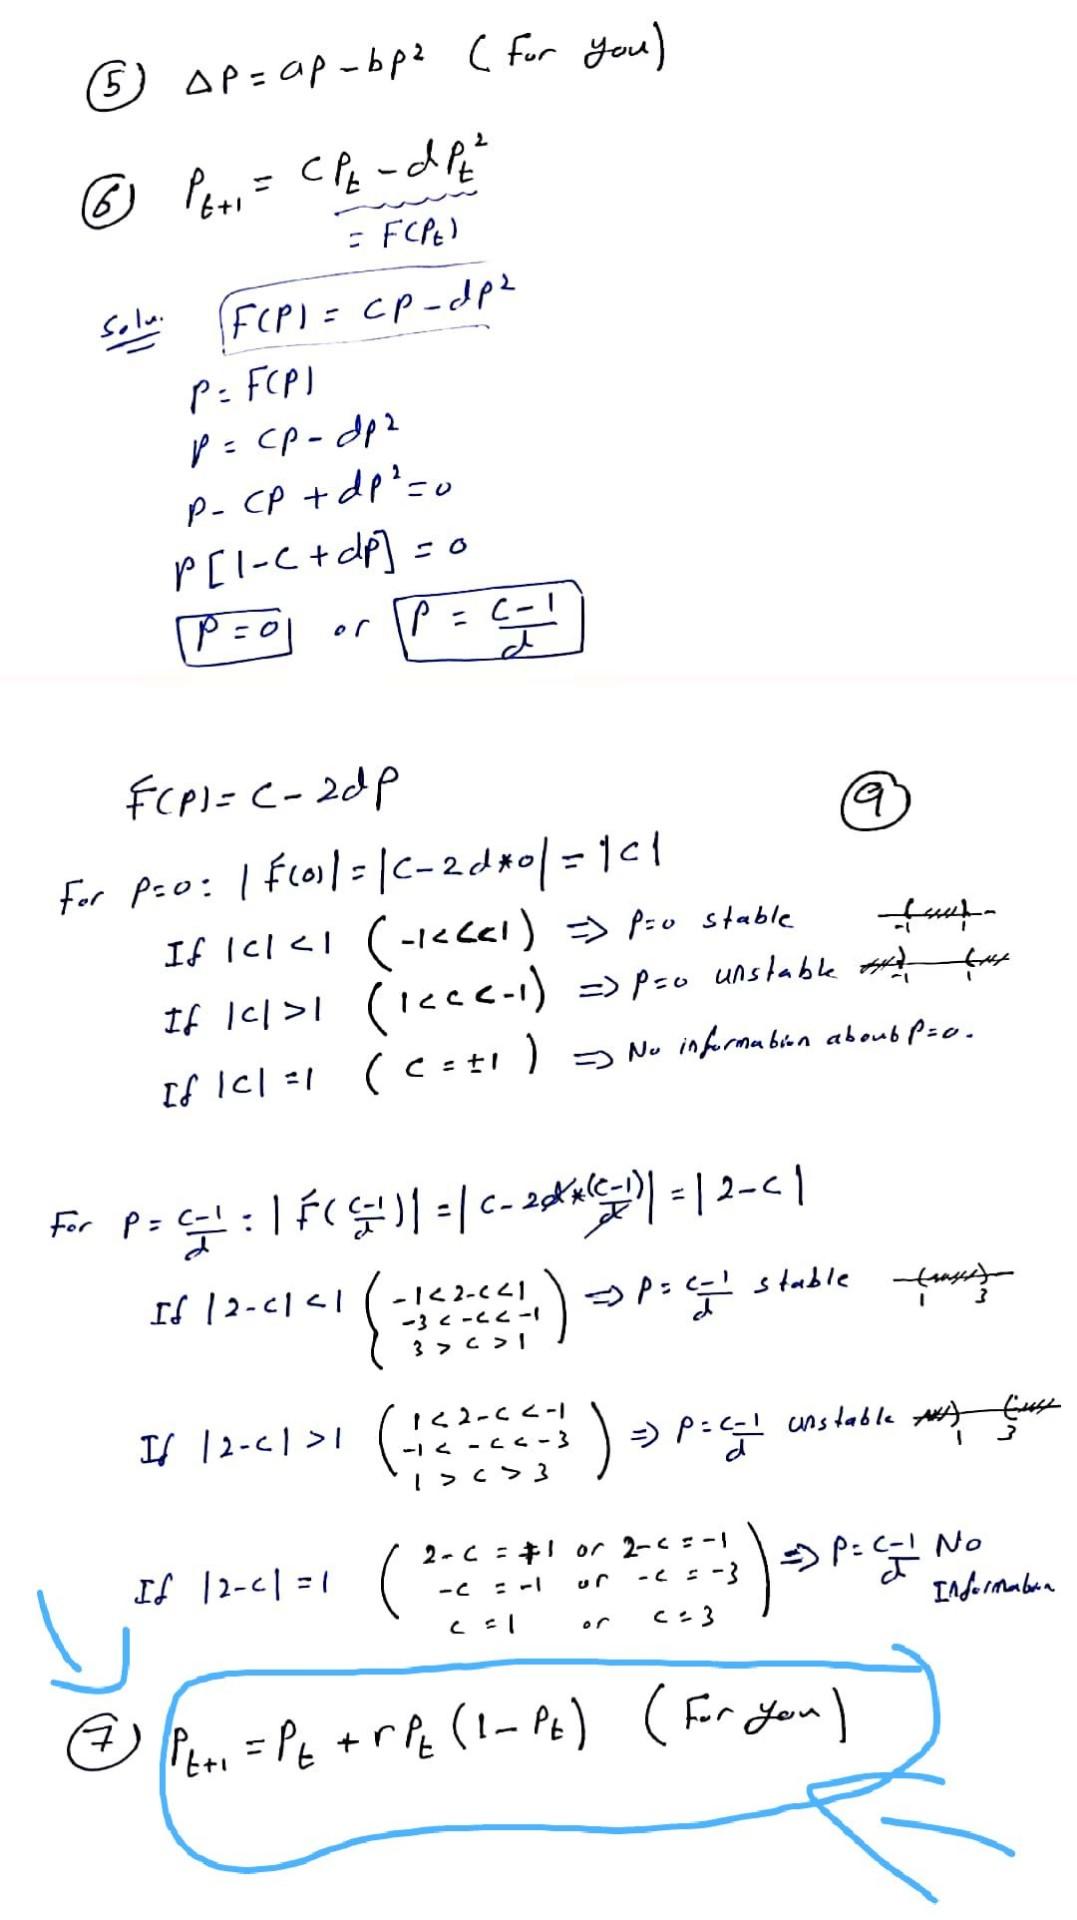 ⑤ ΔP = aP - bP² (For you)
⑥ P_{t+1} = CP_t - dP_t²
= F(P_t)
Solu. F(P) = CP - dP²
P = F(P)
P = CP - dP²
P - CP + dP² = 0
P[1 - C + dP] = 0
P = 0 or P = \frac{C-1}{d}
F́(P) = C - 2dP ⑨
For P=0: |F́(0)| = |C - 2d*0| = |C|
If |C| < 1 (-1<C<1) ⇒ P=0 stable -1 1
If |C| > 1 (1<C<-1) ⇒ P=0 unstable -1 1
If |C| = 1 (C = ±1) ⇒ No information about P=0.
For P = \frac{C-1}{d} : |F́(\frac{C-1}{d})| = |C - 2d*\frac{(C-1)}{d}| = |2-C|
If |2-C| < 1 ( -1<2-C<1
-3<-C<-1
3>C>1 ) ⇒ P = \frac{C-1}{d} stable 1 3
If |2-C| > 1 ( 1<2-C<-1
-1<-C<-3
1>C>3 ) ⇒ P = \frac{C-1}{d} unstable 1 3
If |2-C| = 1 ( 2-C = +1 or 2-C = -1
-C = -1 or -C = -3
C = 1 or C = 3 ) ⇒ P = \frac{C-1}{d} No
Information
⑦ P_{t+1} = P_t + rP_t(1 - P_t) (For you)